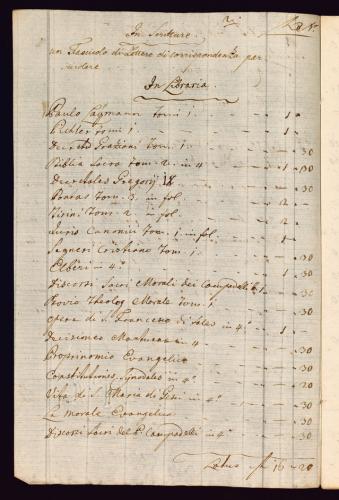 2
In Scritture
un Fascicolo di Lettere di corrispondenza per
In Libraria
Paulo Laymann tomi 1 1
Pichler tomi 1 1
tom. 1 30
Biblia Sacra tom. 2 in 4 1 30
Decretales Gregorij IX 30
tom. 3 in fol. 2
tom. 2 in fol. 2
Juris Canonici tom. 1 in fol. 1
Segneri Cristiano tom. 1 30
in 4º 1 30
Discorsi Sacri Morali del Campadelli t. 1 30
Theolog Morale tom. 1 30
Opera di S. Francesco di Sales in 4º 1
Decisiones Mantuanae 4º 30
Evangelico 30
Constitutiones Synodales in 4º 20
Vita di S. Maria di Gesù in 4º 30
La Morale Evangelica 30
Discorsi Sacri del P. Campadelli in 4º 30
Latus f 16 20